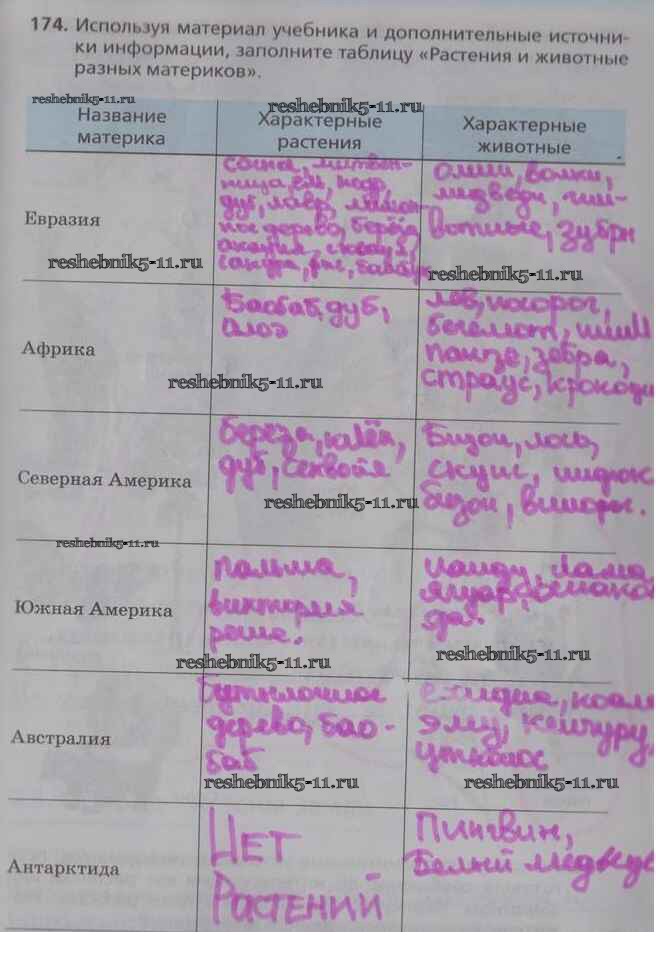 174. Используя материал учебника и дополнительные источни-
ки информации, заполните таблицу «Растения и животные
разных материков».
reshebnik5-11.ru
reshebnik5-11.ru
Название
материка
Характерные
растения
Характерные
животные
Евразия
сосна, листвен-
ница, ель, кедр,
дуб, лавр, лимон-
ное дерево, берёза,
акация,
сакура, рис, бамбук
олени, волки,
медведи,
вотные, зубры
reshebnik5-11.ru
reshebnik5-11.ru
Африка
Баобаб, дуб,
алоэ
лев, носорог,
бегемот, шим
панзе, зебра,
страус, крокоди
reshebnik5-11.ru
Северная Америка
береза, клён,
дуб, секвойя
Бизон, лось,
скунс,
бизон,
reshebnik5-11.ru
reshebnik5-11.ru
Южная Америка
пальма,
виктория
регия.
нанду, лама
ягуар,
reshebnik5-11.ru
reshebnik5-11.ru
Австралия
Бутылочное
дерево, бао-
баб
ехидна, коала
эму, кенгуру,
утконос
reshebnik5-11.ru
reshebnik5-11.ru
Антарктида
НЕТ
РАСТЕНИЙ
Пингвин,
Белый медведь